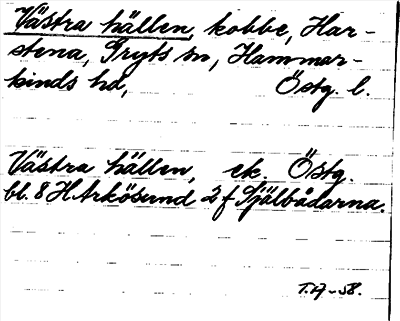 Västra hällen, kobbe, Har-
stena, Gryts sn, Hammar-
kinds hd, Östg. l.
Västra hällen, ek. Östg.
bl. 8 H. Arkösund 2 f Själbådarna.